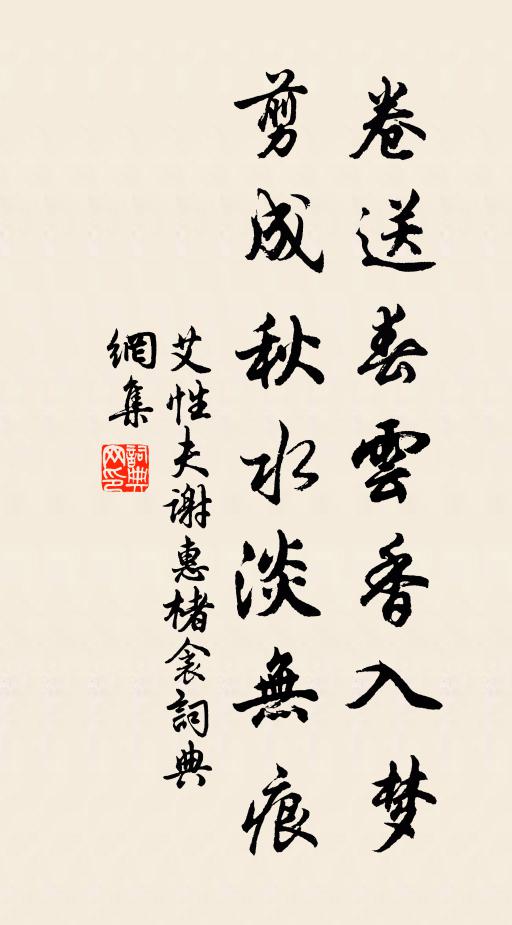 卷送春雲香入梦
剪成秋水淡無痕
艾性夫謝惠楮衾詞典
網集
詞典網印